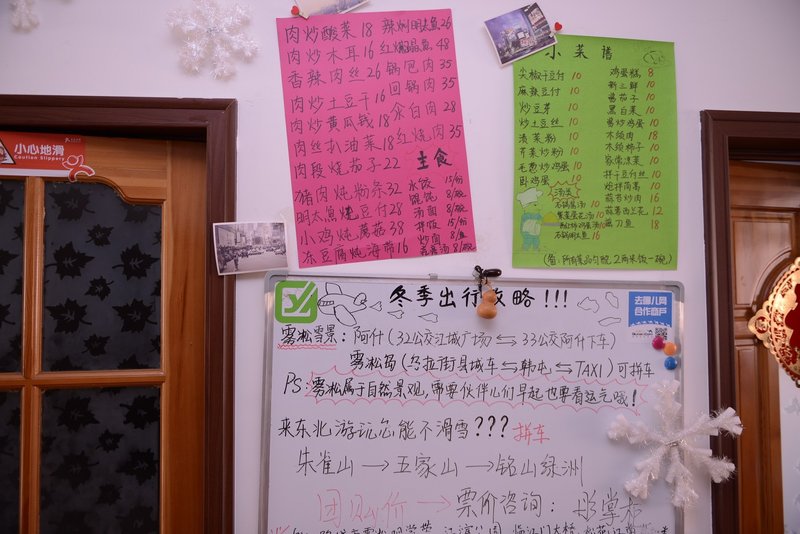 小心地滑
Caution Slippery
肉炒酸菜18 辣焖明太鱼26
肉炒木耳16 红焖鲳鱼48
香辣肉丝26 锅包肉35
肉炒土豆干16 回锅肉35
肉炒黄瓜钱18 汆白肉28
肉丝扒油菜18 红烧肉35
肉段烧茄子22
主食
猪肉炖粉条32
水饺 15/份
明太鱼炖豆付28
馄饨 8/碗
小鸡炖蘑菇38
汤面 8/碗
冻豆腐炖海带16
拌饭 15/份
炒面
8/碗
小菜谱
尖椒干豆付 10
麻辣豆付 10
炒豆芽 10
炒土豆丝 10
渍菜粉 10
芹菜炒粉 10
毛葱炒鸡蛋 10
卧鸡蛋
汤类
鸡蛋糕 8
新三鲜 10
酱茄子 10
黑白菜 10
葱炒鸡蛋 10
木须肉 18
木须柿子 10
家常凉菜 10
拌干豆付丝 10
炝拌茼蒿 10
蒜苔炒肉 16
蒜茸西兰花 12
18
(备:所有菜品匀配2两米饭一碗)
冬季出行攻略!!!
去哪儿网
合作商户
雾凇雪景:阿什(32公交江城广场⇆33公交阿什下车)
雾凇岛(乌拉街县城车⇆韩屯⇆TAXI)可拼车
PS:雾凇属于自然景观,需要伙伴儿们早起也要看运气哦!
来东北游玩怎能不滑雪??? 拼车
朱雀山→五家山→铭山绿洲
团购价→票价咨询: